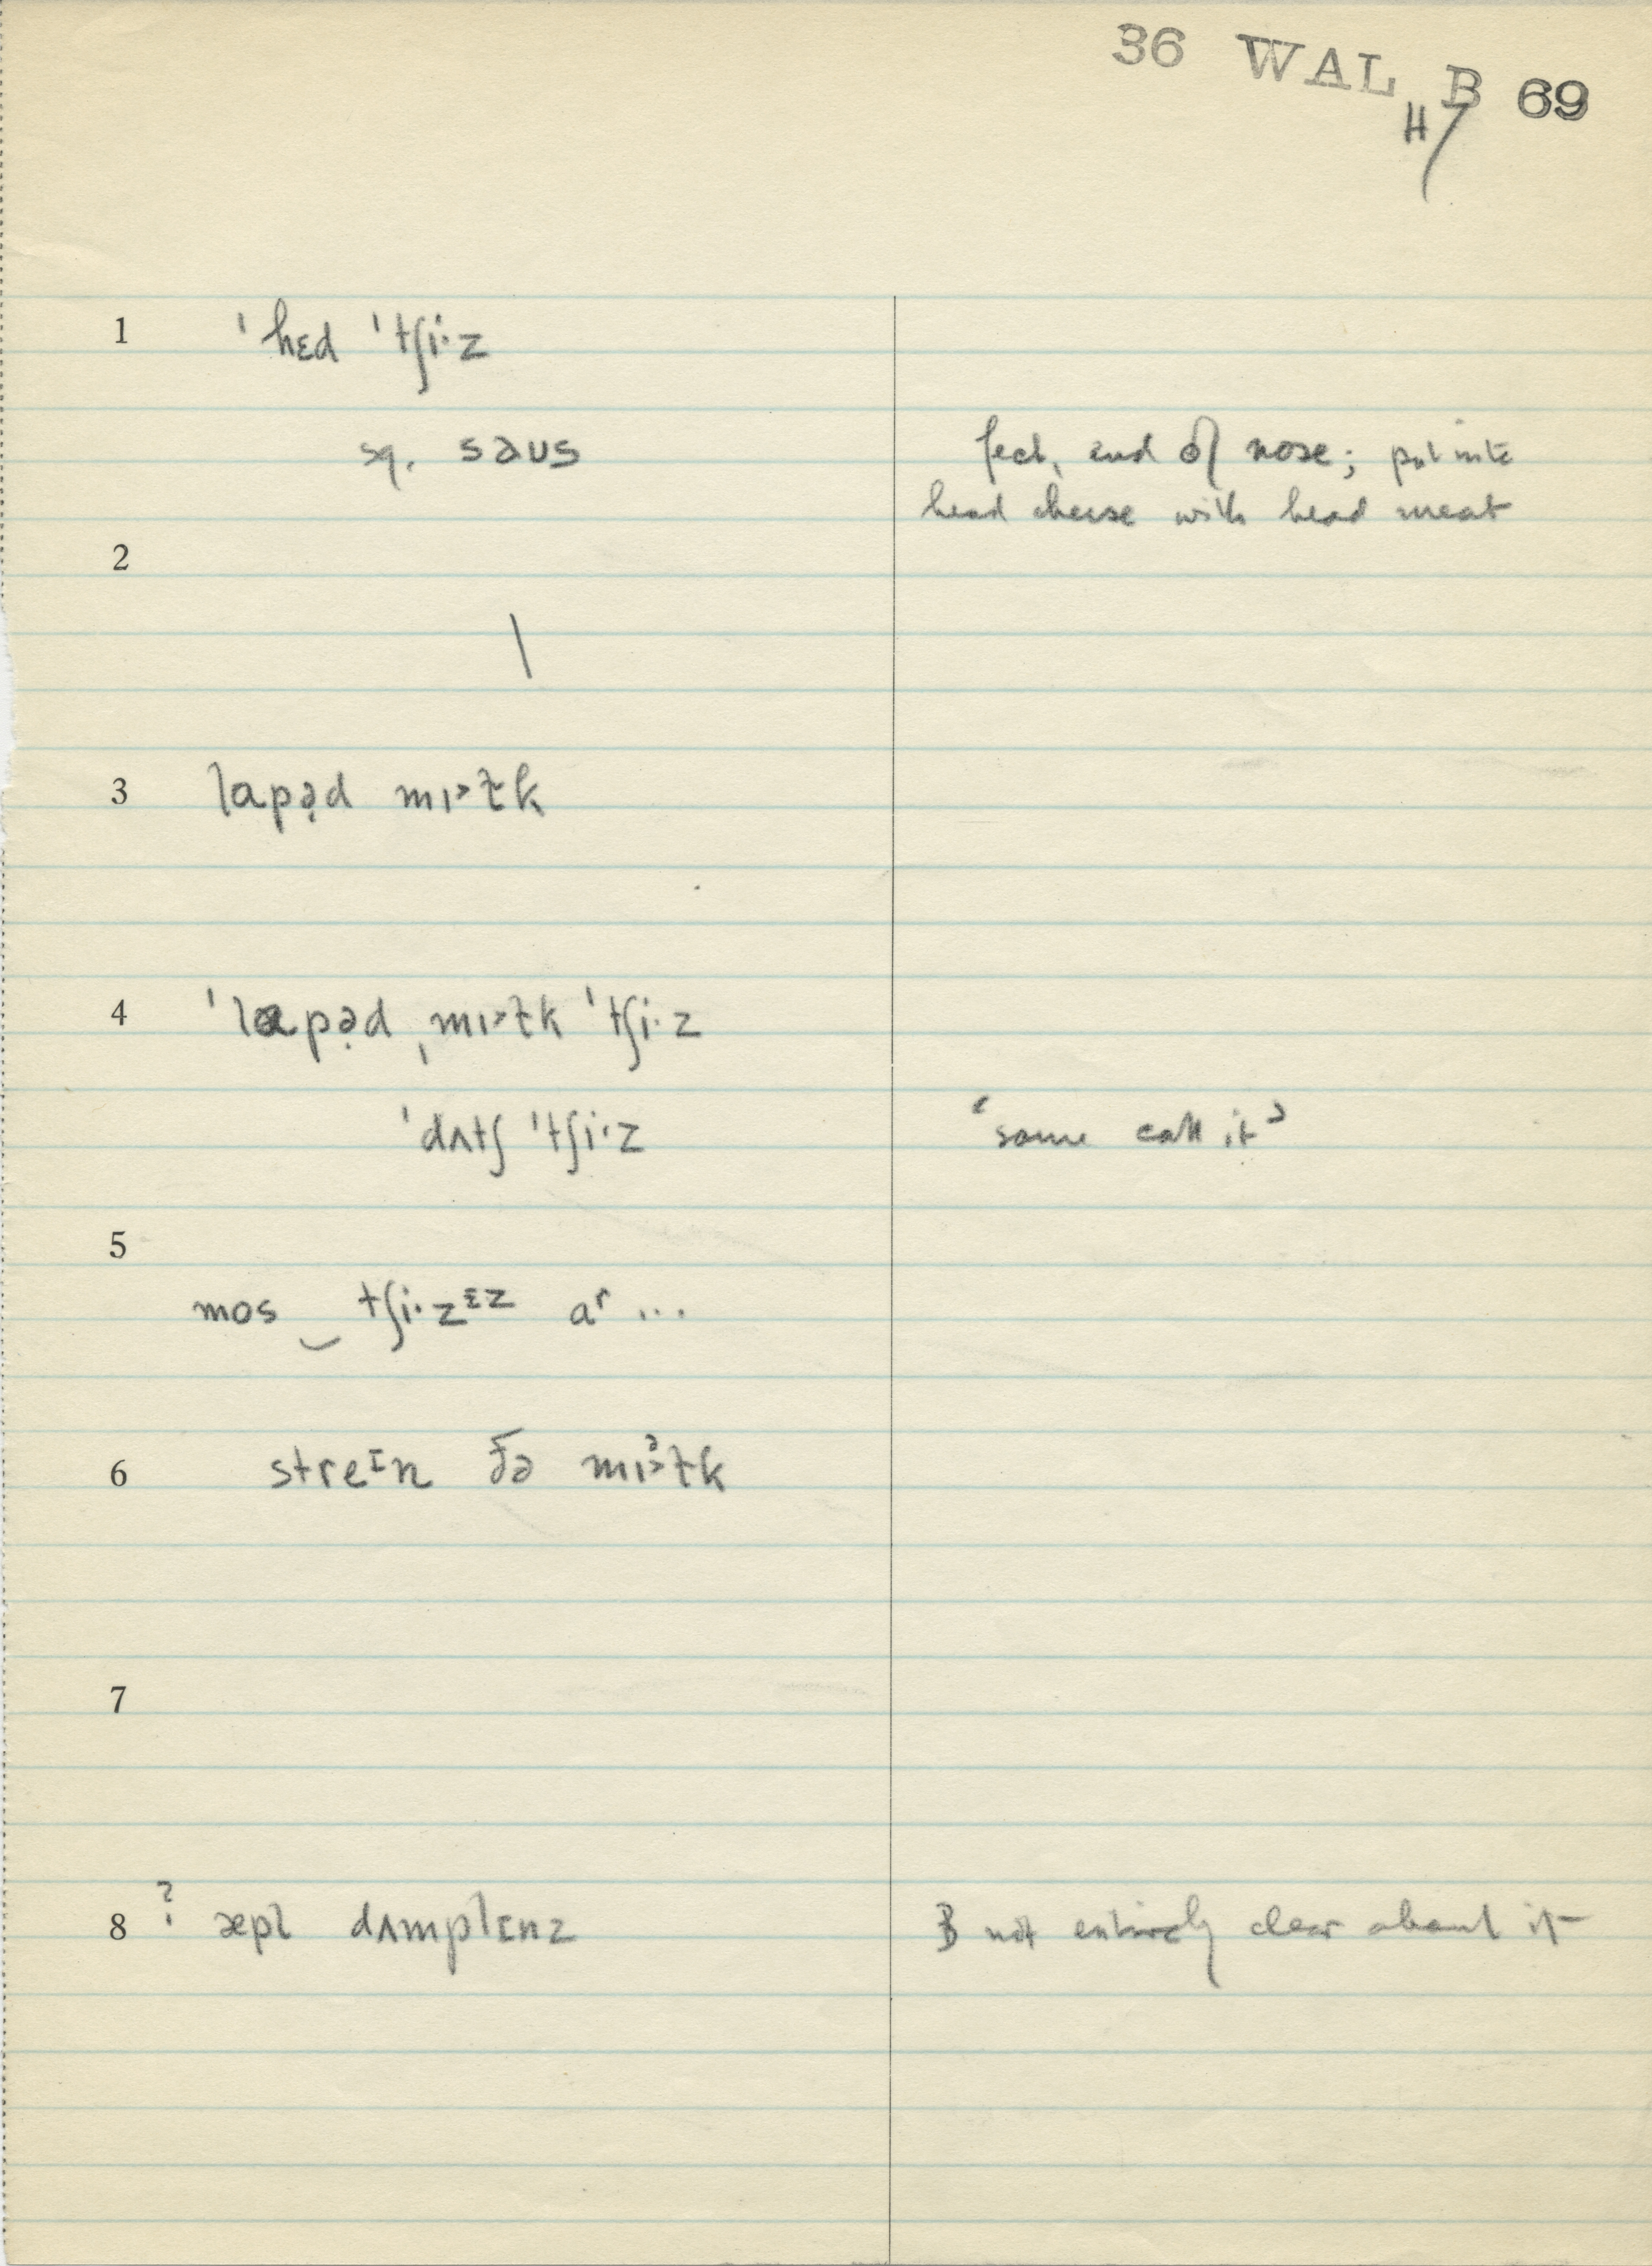 36 WAL B 69
H7
1 ˈhɛd ˈtʃi·z
sq. saʊs
feet, end of nose; put into
head cheese with head meat
2
\
3 lapə̣d mɪ˃ɫk
4 ˈlapə̣d ˌmɪ˃ɫk ˈtʃi·z
ˈdʌtʃ ˈtʃi·z
‘some call it’
5
mos ‿ tʃi·zᶦz aʳ ...
6 streᶦn ðə mɪ˃ᵊɫk
7
8 ? æpl dʌmplɪnz
B not entirely clear about it